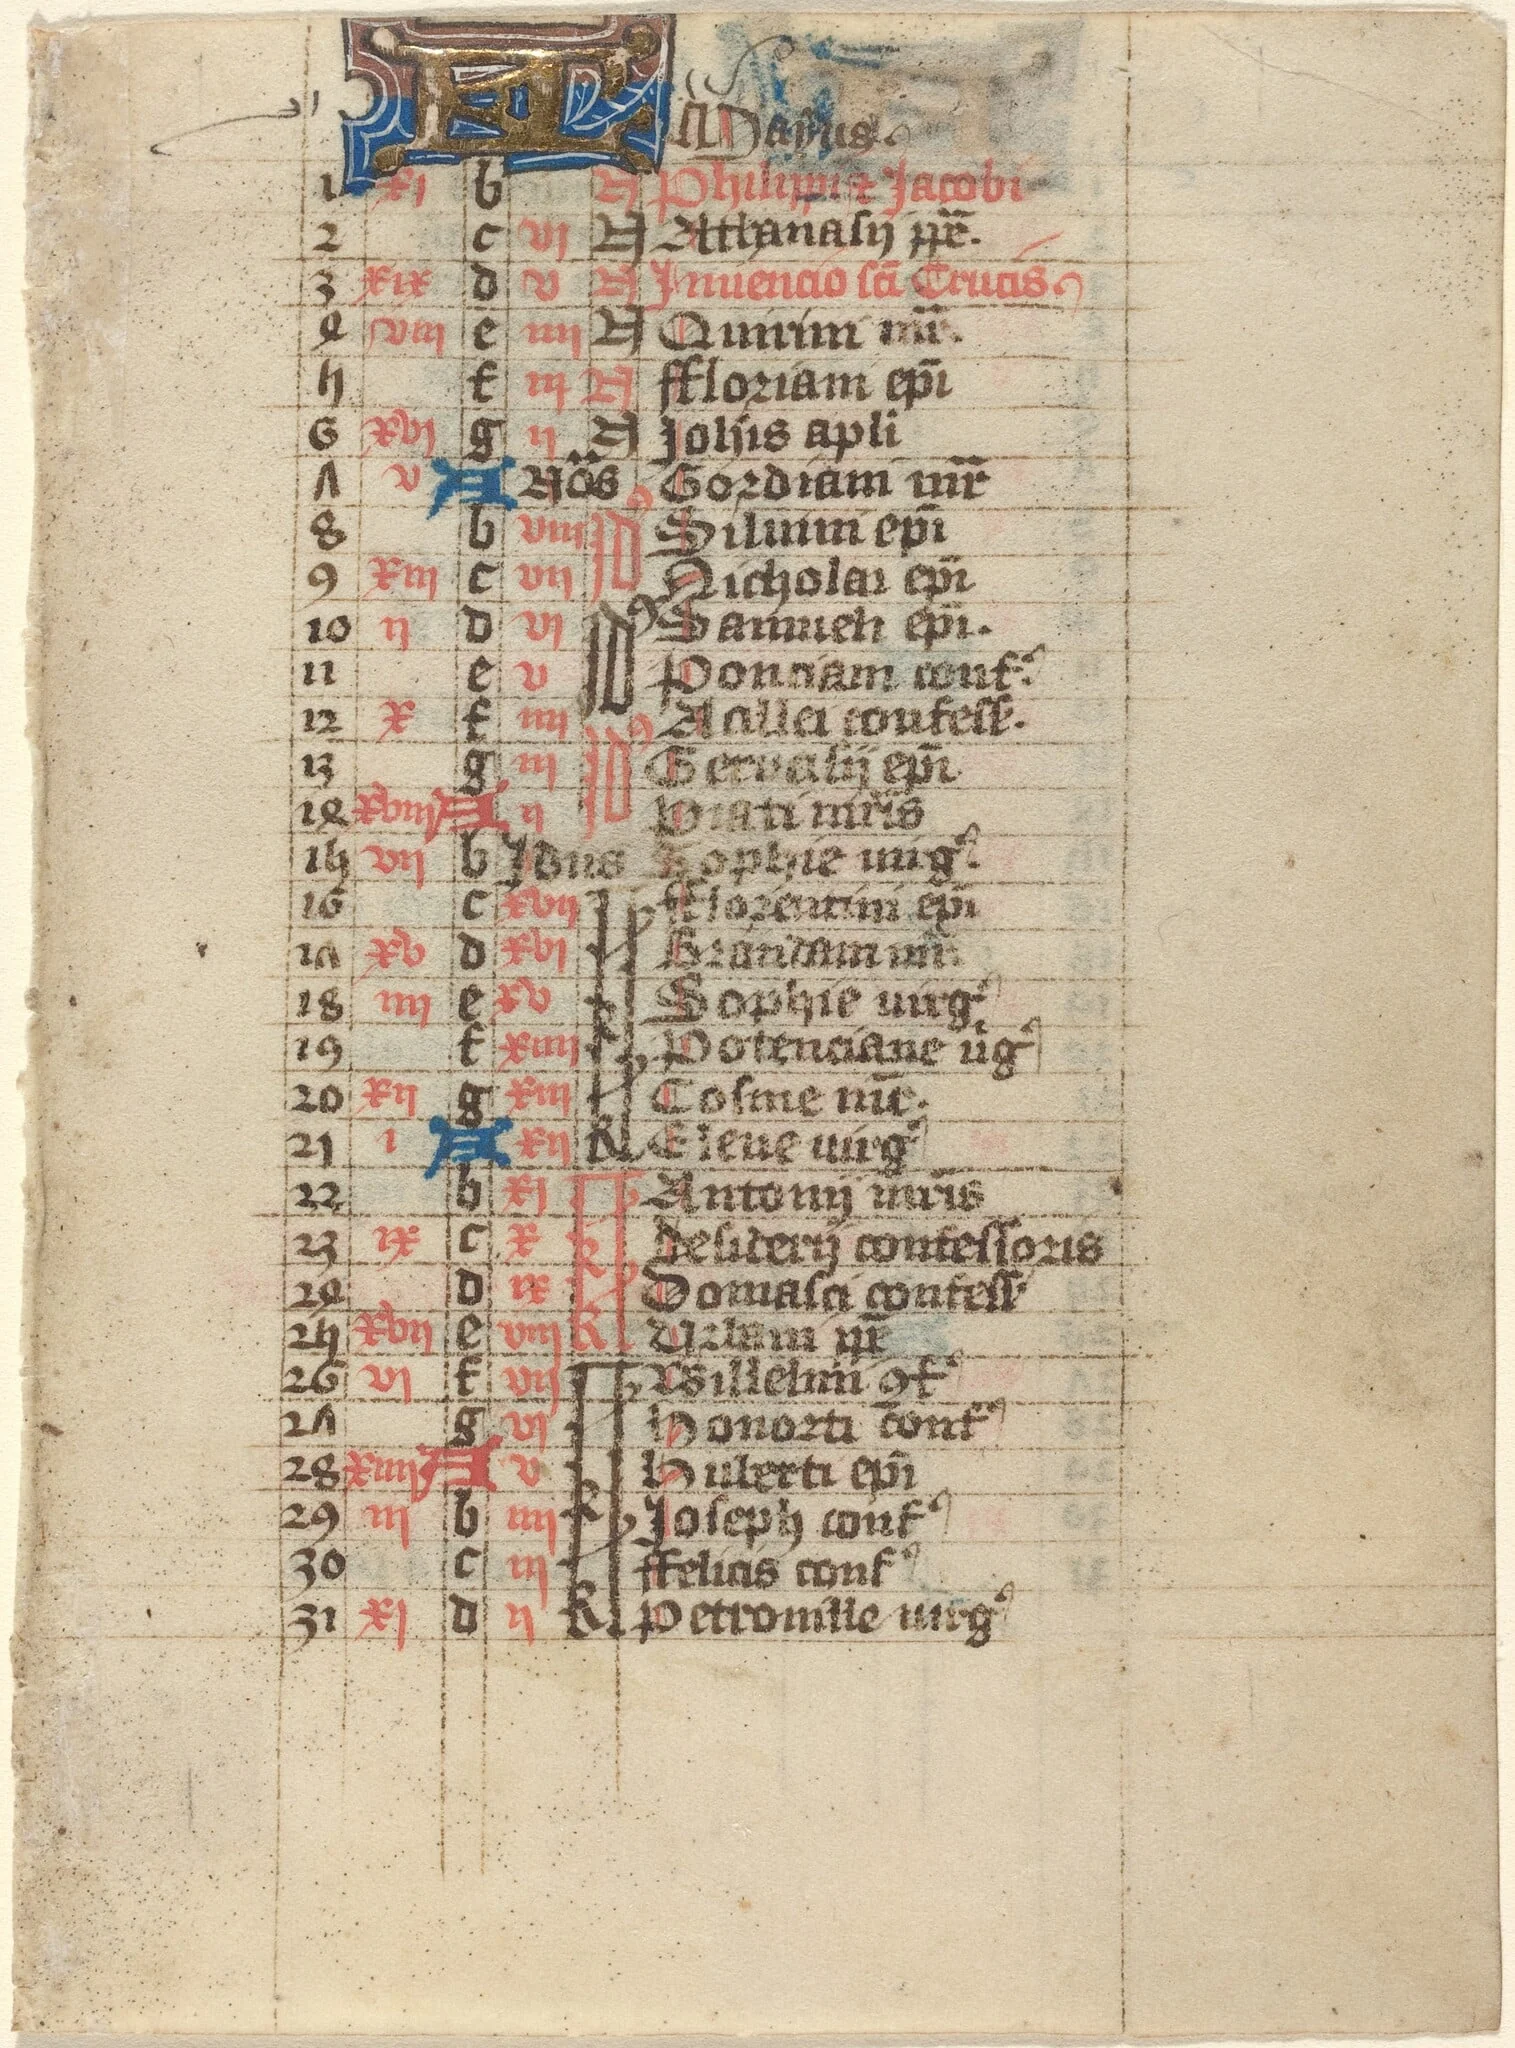 KL Mayus
1 xi b N Philippi et Jacobi
2 c vi N Athanasij ppe.
3 xix d v N Inuencio scī Crucis
4 viii e iiii N Quirini mr̄.
5 f iii N ffloriani epī
6 xvi g ii N Johis apli
7 v A Nōs Gordiani mr̄
8 b viii Id9 Siluini epī
9 xiii c vii Nicholai epī
10 ii d vi Id9 Samueli epī.
11 e v Ponciani conf.
12 x f iiii Acillei confess.
13 g iii Id9 Geruasij epī
14 xviii A ii Piati mr̄is
15 vii b Idus Sophie uirg
16 c xvii fflorentini epī
17 xv d xvi Brandani mr̄.
18 iiii e xv Sophie uirg
19 f xiiii kl Potenciane uīg
20 xii g xiii Cosme mr̄.
21 i A xii kl Elene uirg
22 b xi Antonij mr̄is
23 ix c x Desiderij confessoris
24 d ix Domasci confess
25 xvii e viii kl Urbani pp̄
26 vi f vii Willelmi 9f
27 g vi Honorti conf
28 xiiii A v Huberti epī
29 iii b iiii Joseph conf
30 c iii ffelicis conf
31 xi d ii kl Petronille uirg